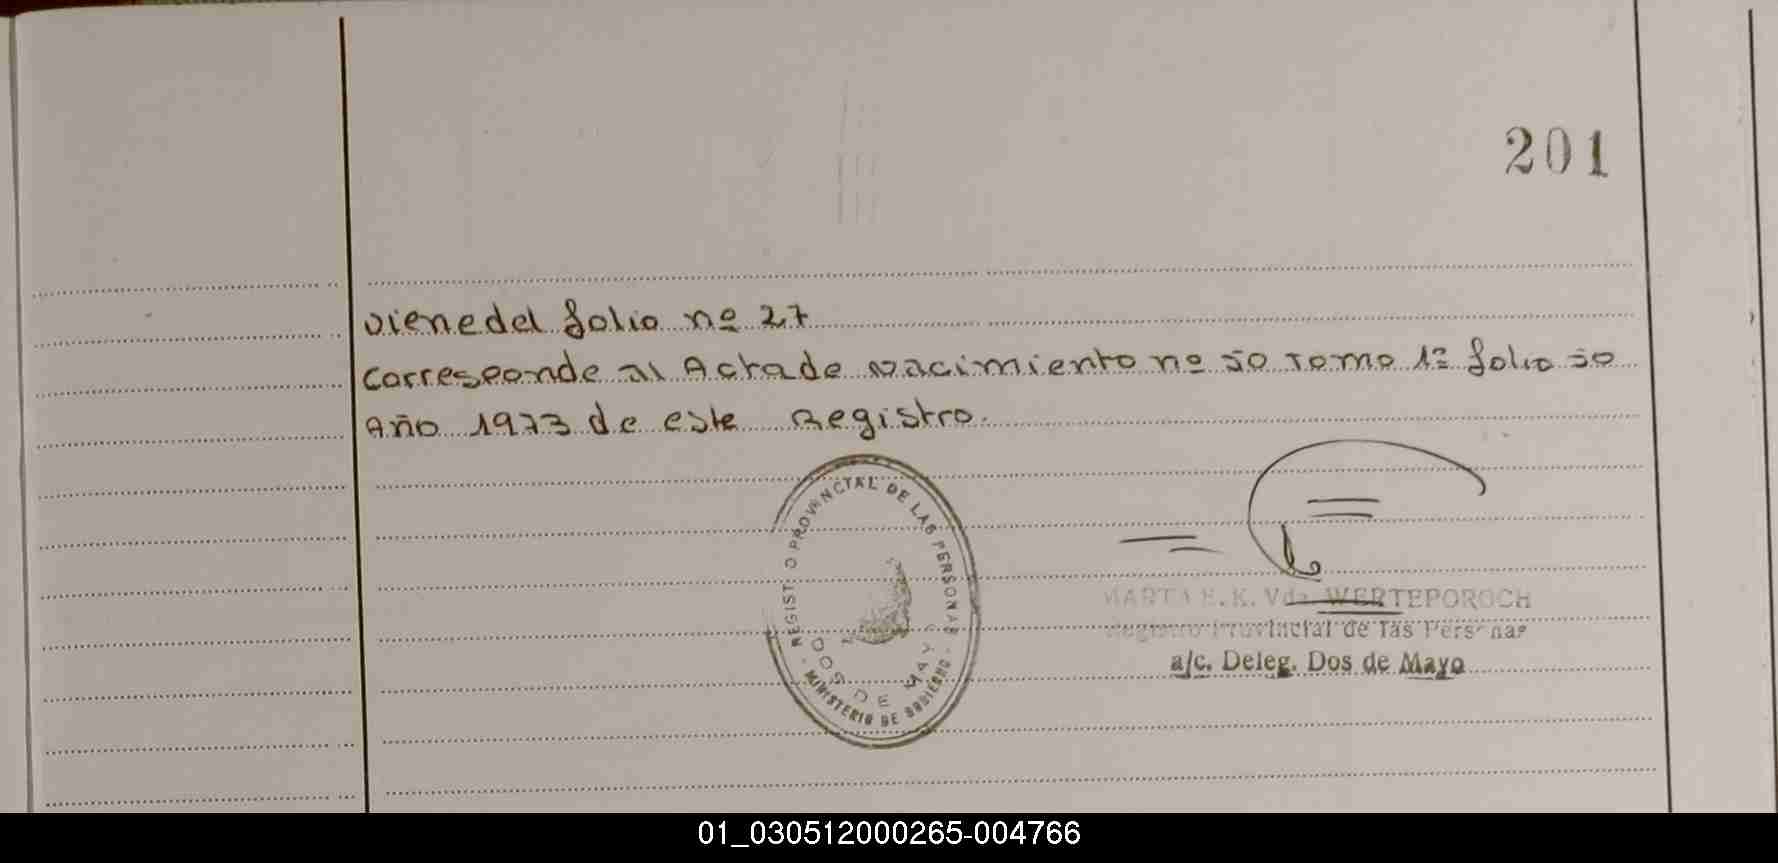 201
viene del folio nº 27
corresponde al Acta de nacimiento nº 50 Tomo 1º folio 50
Año 1973 de este Registro.
REGISTRO PROVINCIAL DE LAS PERSONAS
DOS DE MAYO
MINISTERIO DE GOBIERNO
MARTA E. K. Vda. WERTEPOROCH
Registro Provincial de las Personas
a/c. Deleg. Dos de Mayo
01_030512000265-004766